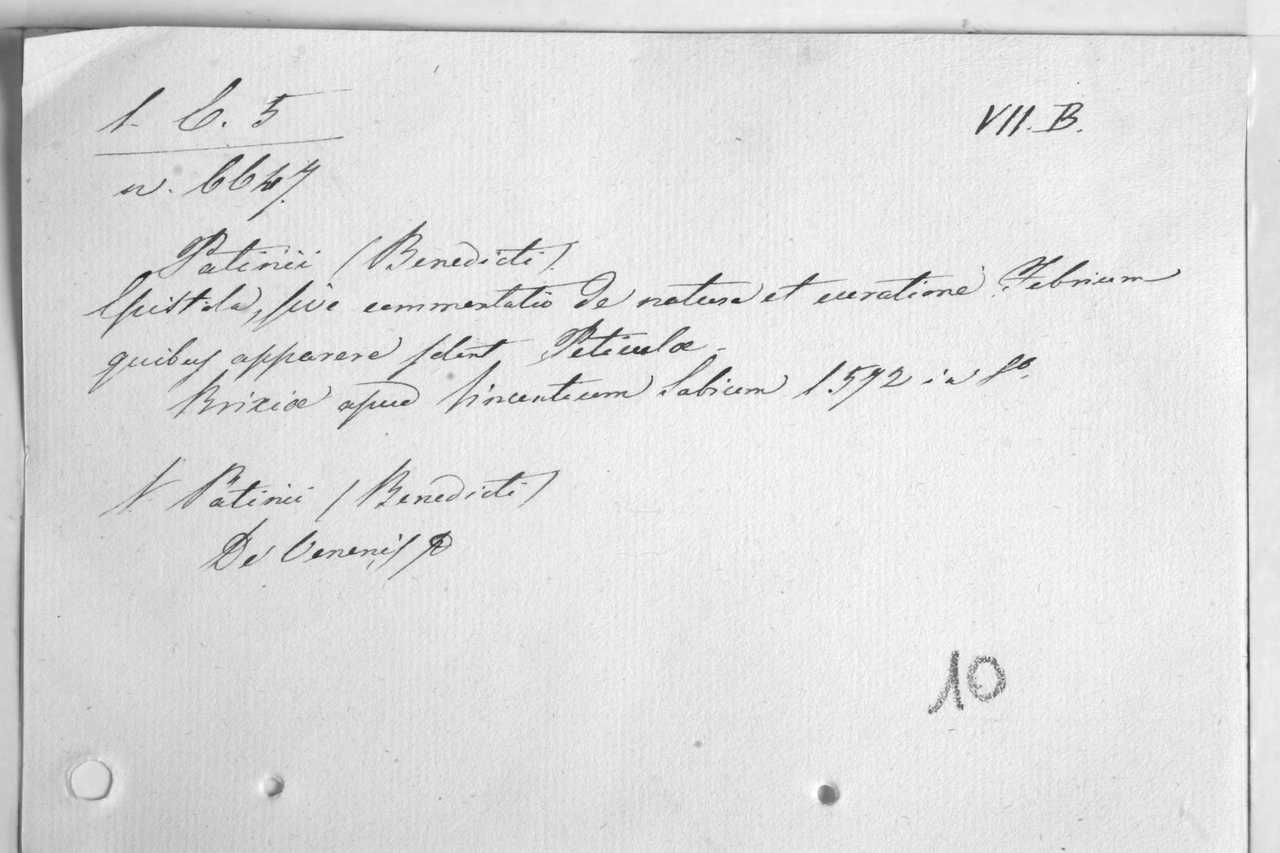 1. C. 5
VII. B.
n. 6647.
Patinii (Benedicti).
Epistola, sive commentatio de natura et curatione Febrium
quibus apparere solent Peticulæ.
Brixiæ apud Vincentium Sabium 1572 in
Patinii (Benedicti)
De Venenis
10